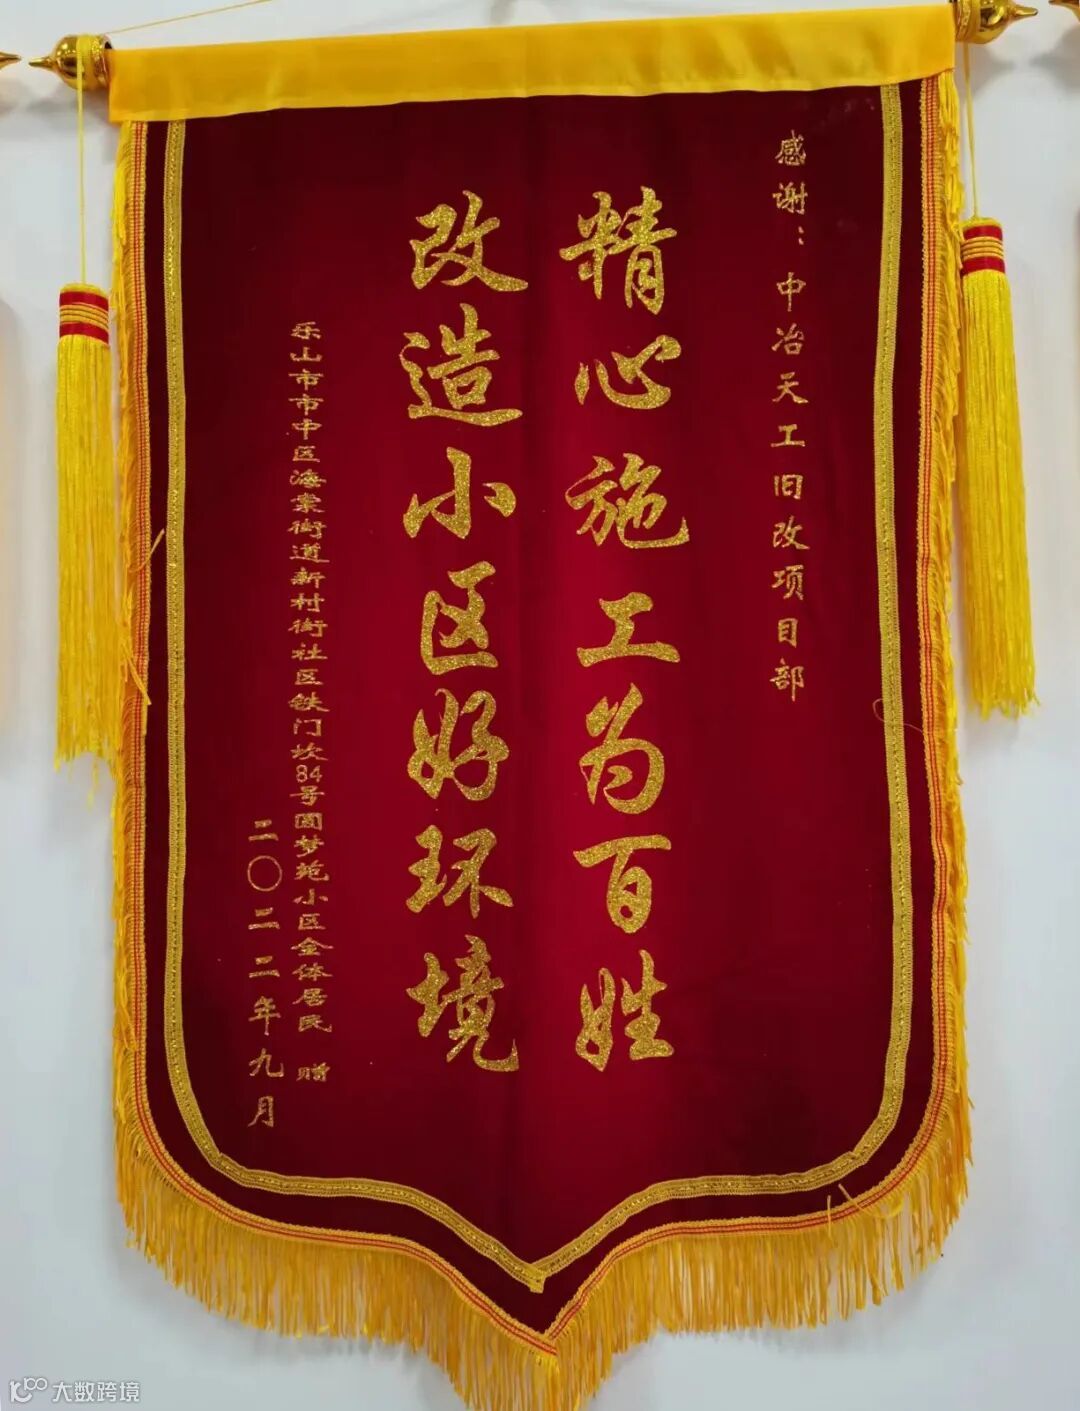 感谢：中冶天工旧改项目部
精心施工为百姓
改造小区好环境
乐山市市中区海棠街道新村街社区铁门坎84号圆梦苑小区全体居民 赠
二〇二二年九月
大数跨境